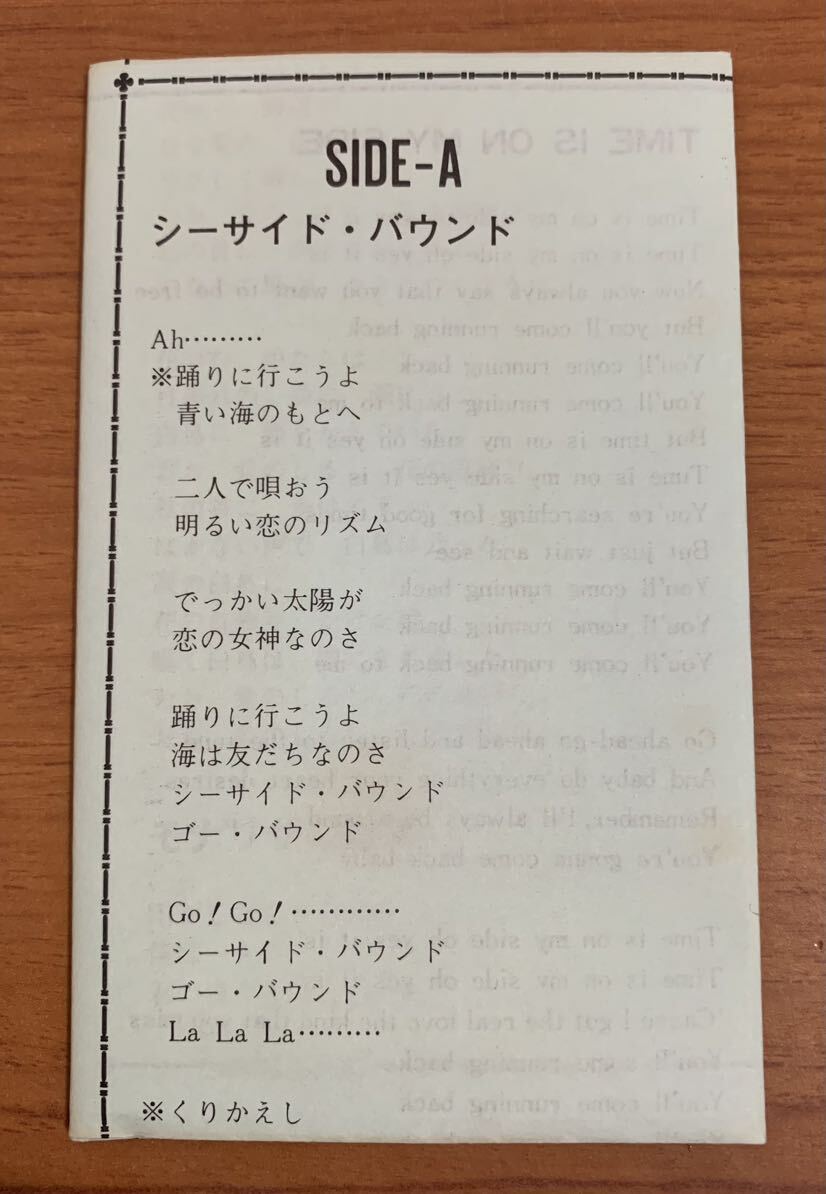 SIDE-A
シーサイド・バウンド
Ah………
※踊りに行こうよ
青い海のもとへ
二人で唄おう
明るい恋のリズム
でっかい太陽が
恋の女神なのさ
踊りに行こうよ
海は友だちなのさ
シーサイド・バウンド
ゴー・バウンド
Go! Go! …………
シーサイド・バウンド
ゴー・バウンド
La La La………
※くりかえし